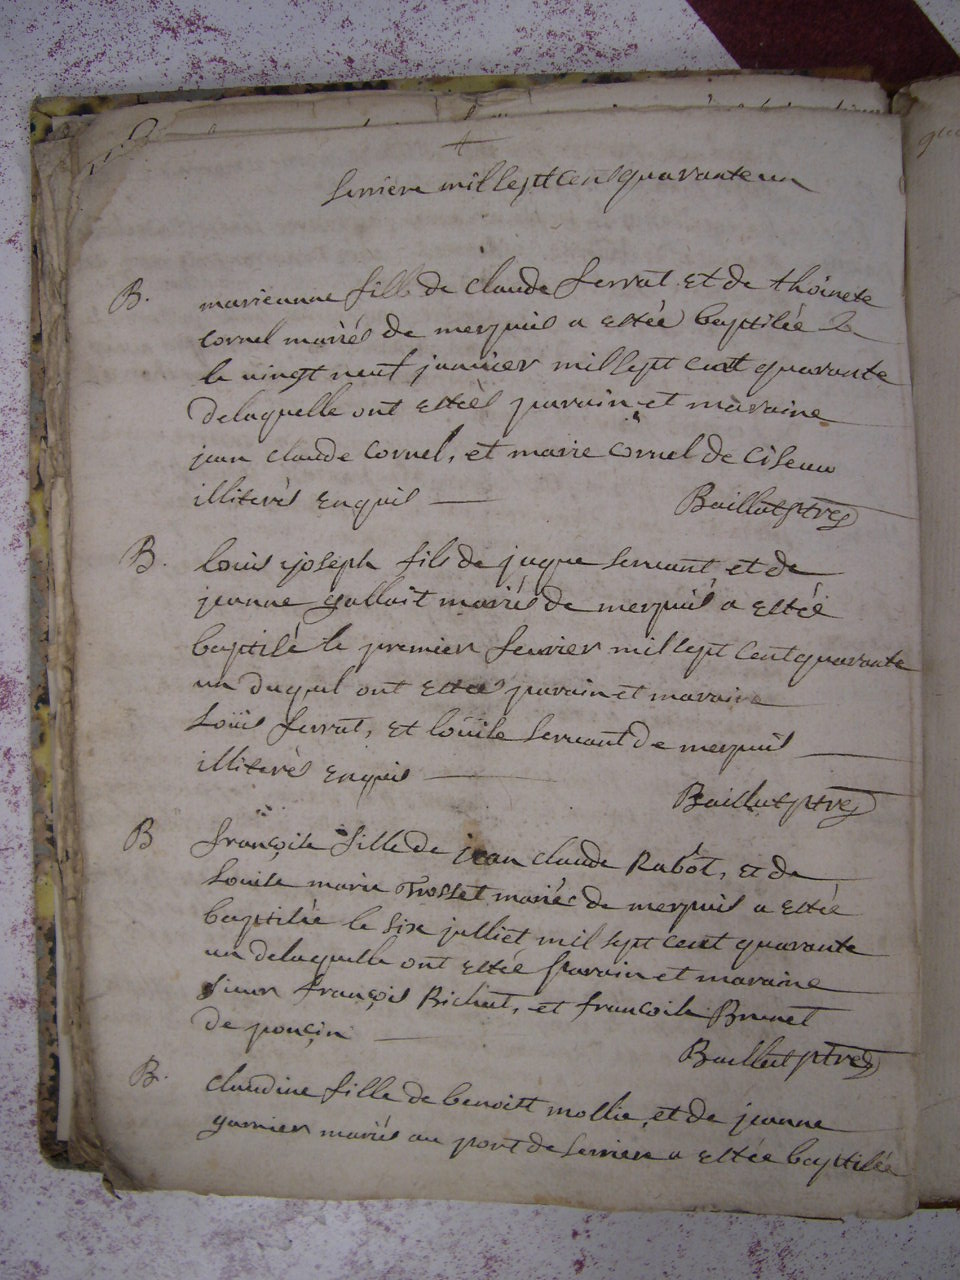 serriere mil sept cent quarante un
B. marieanne fille de claude ferrat et de thoinete
cornel mariés de merpuis a estée baptisée
le vingt neuf janvier mil sept cent quarante
delaquelle ont estés parain et maraine
jean claude cornel, et marie cornel de Ciseau
illiterés enquis Baillat ptre
B. louis joseph fils de jaque servant et de
jeanne gallait mariés de merpuis a estée
baptisé le premier fevrier mil sept cent quarante
un duquel ont estés parain et maraine
Loüis ferrat, et loüise servant de merpuis
illiterés enquis Baillat ptre
B françoise fille de jean claude Rabôt, et de
louise marie Trosset mariés de merpuis a estée
baptisée le six julliet mil sept cent quarante
un delaquelle ont estée parain et maraine
sieur françois Richat, et francoise Brunet
de ponçin Baillat ptre
B. claudine fille de benoitt mollie, et de jeanne
garnier mariés au port de serriere a estée baptisée